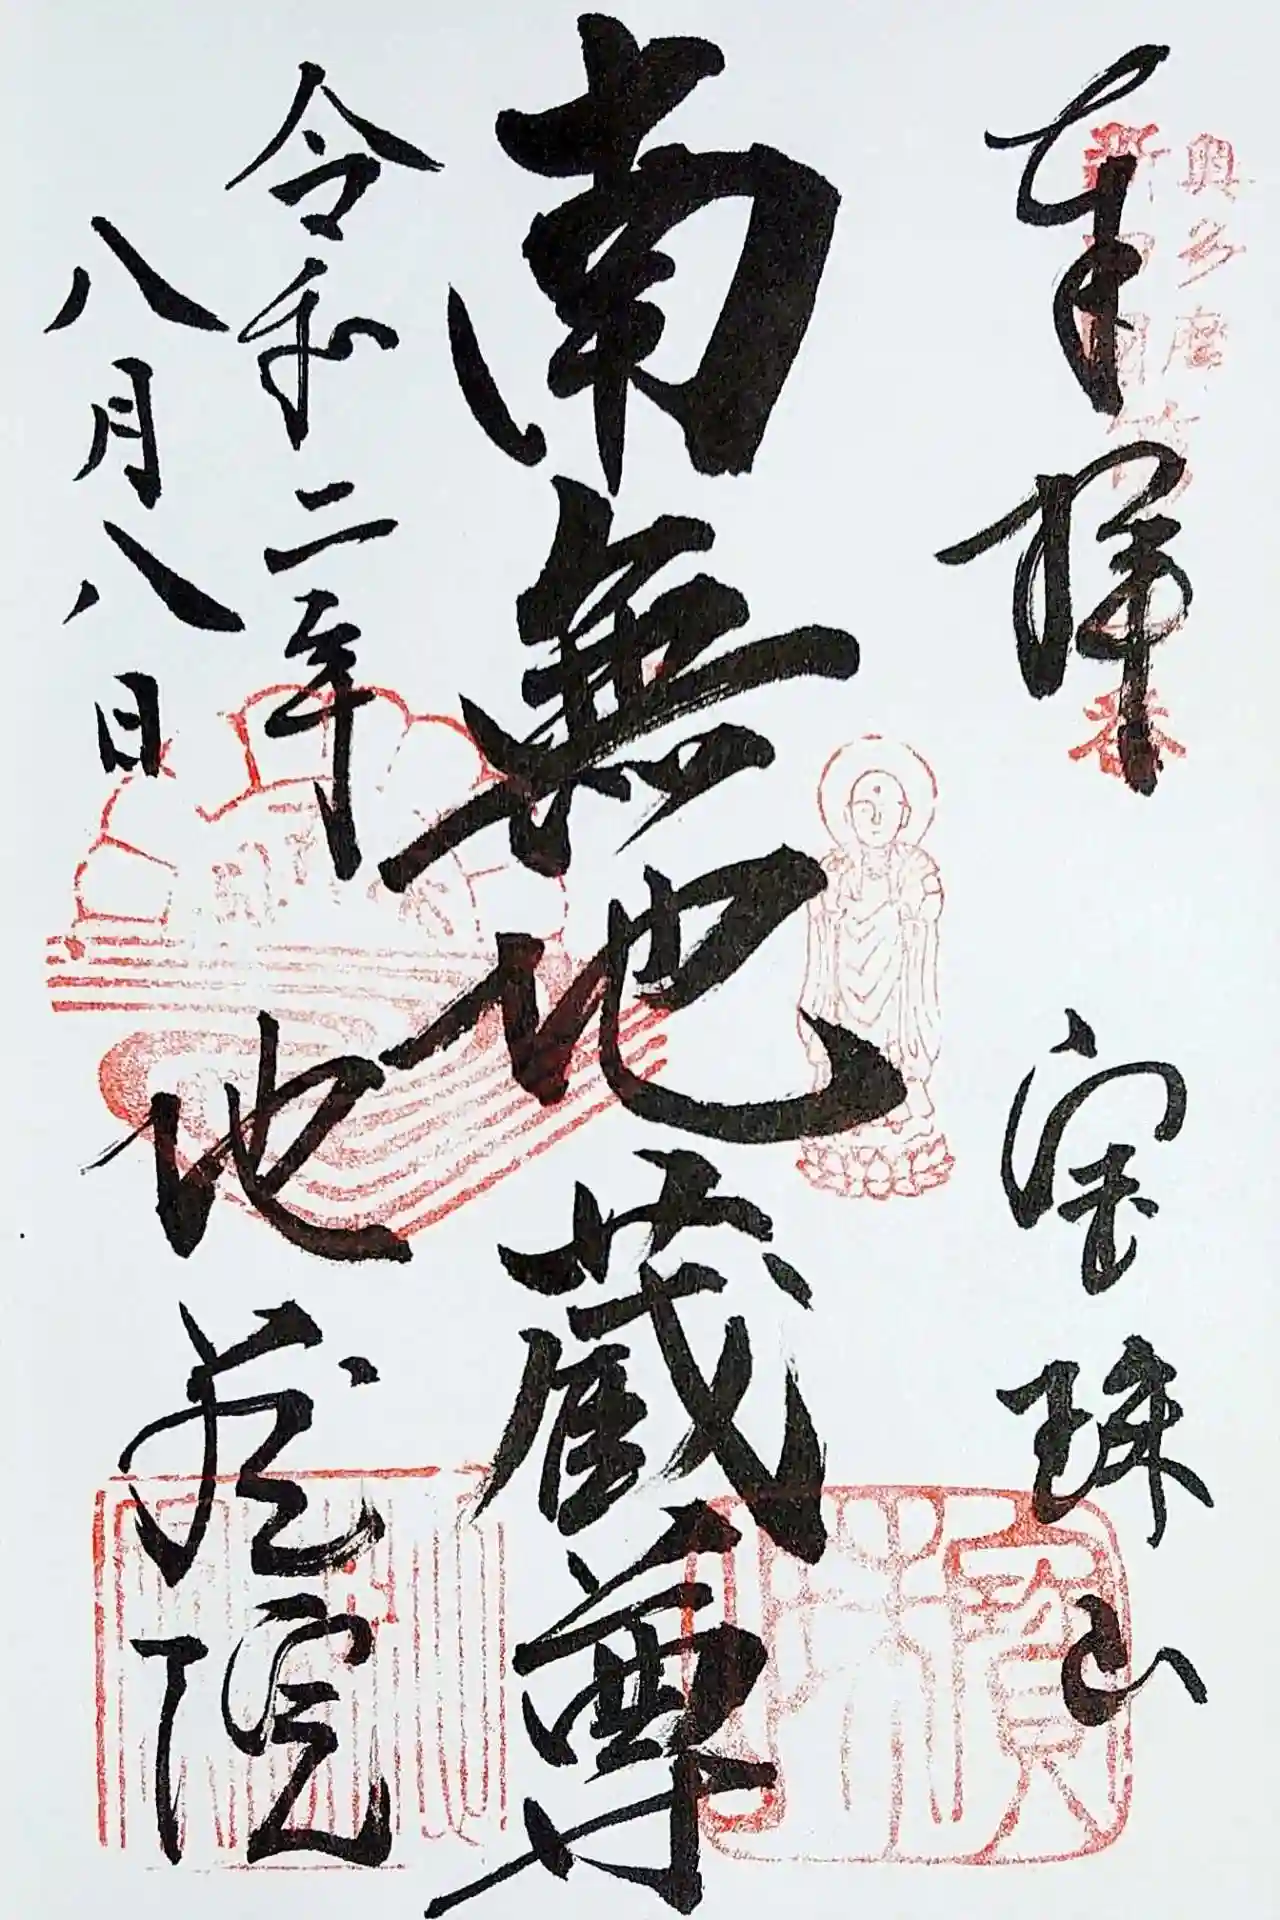 奥多摩
新四国
奉拝
宝珠山
南無地蔵尊
令和二年
八月八日
地蔵院